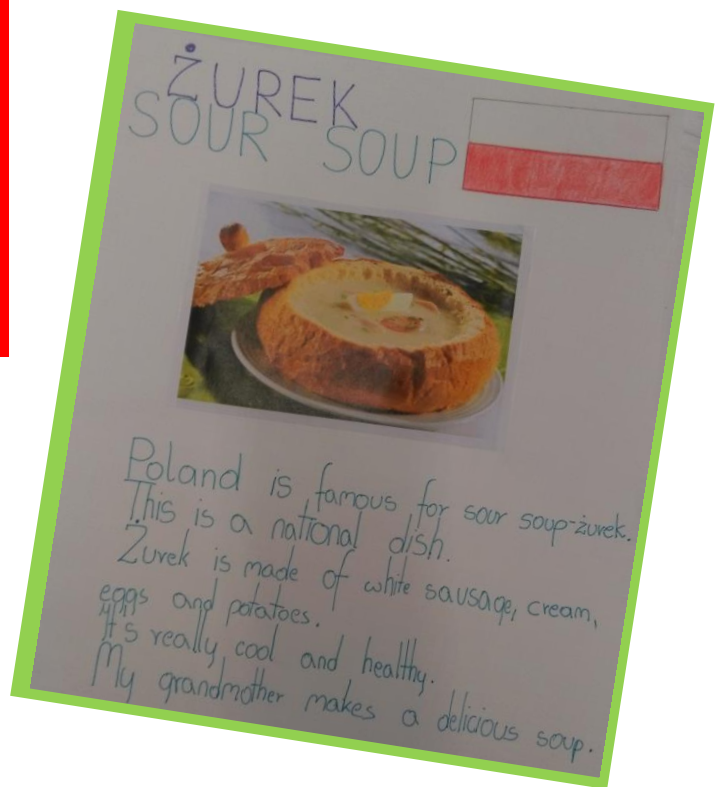 ŻUREK
SOUR SOUP
Poland is famous for sour soup-żurek.
This is a national dish.
Żurek is made of white sausage, cream,
eggs and potatoes.
It's really cool and healthy.
My grandmother makes a delicious soup.